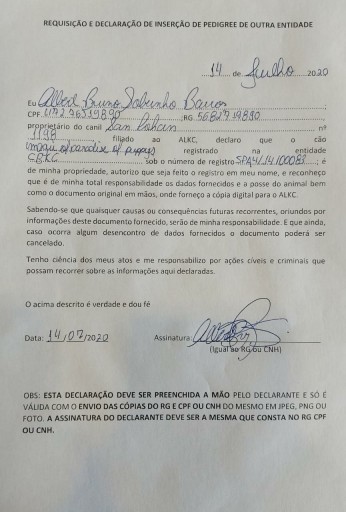 REQUISIÇÃO E DECLARAÇÃO DE INSERÇÃO DE PEDIGREE DE OUTRA ENTIDADE
14 de Julho 2020
Eu Albert Bruno Sabinho Barros
CPF RG
proprietário do canil San nº
1198 filiado ao ALKC, declaro que o cão
of paradise of puppys registrado na entidade
CBKC sob o número de registro ; é
de minha propriedade, autorizo que seja feito o registro em meu nome, e reconheço
que é de minha total responsabilidade os dados fornecidos e a posse do animal bem
como o documento original em mãos, onde forneço a cópia digital para o ALKC.
Sabendo-se que quaisquer causas ou consequências futuras recorrentes, oriundos por
informações deste documento fornecido, serão de minha responsabilidade. E que ainda,
caso ocorra algum desencontro de dados fornecidos o documento poderá ser
cancelado.
Tenho ciência dos meus atos e me responsabilizo por ações cíveis e criminais que
possam recorrer sobre as informações aqui declaradas.
O acima descrito é verdade e dou fé
Data: 14/07/2020 Assinatura:
(Igual ao RG ou CNH)
OBS: ESTA DECLARAÇÃO DEVE SER PREENCHIDA A MÃO PELO DECLARANTE E SÓ É
VÁLIDA COM O ENVIO DAS CÓPIAS DO RG E CPF OU CNH DO MESMO EM JPEG, PNG OU
FOTO. A ASSINATURA DO DECLARANTE DEVE SER A MESMA QUE CONSTA NO RG CPF
OU CNH.